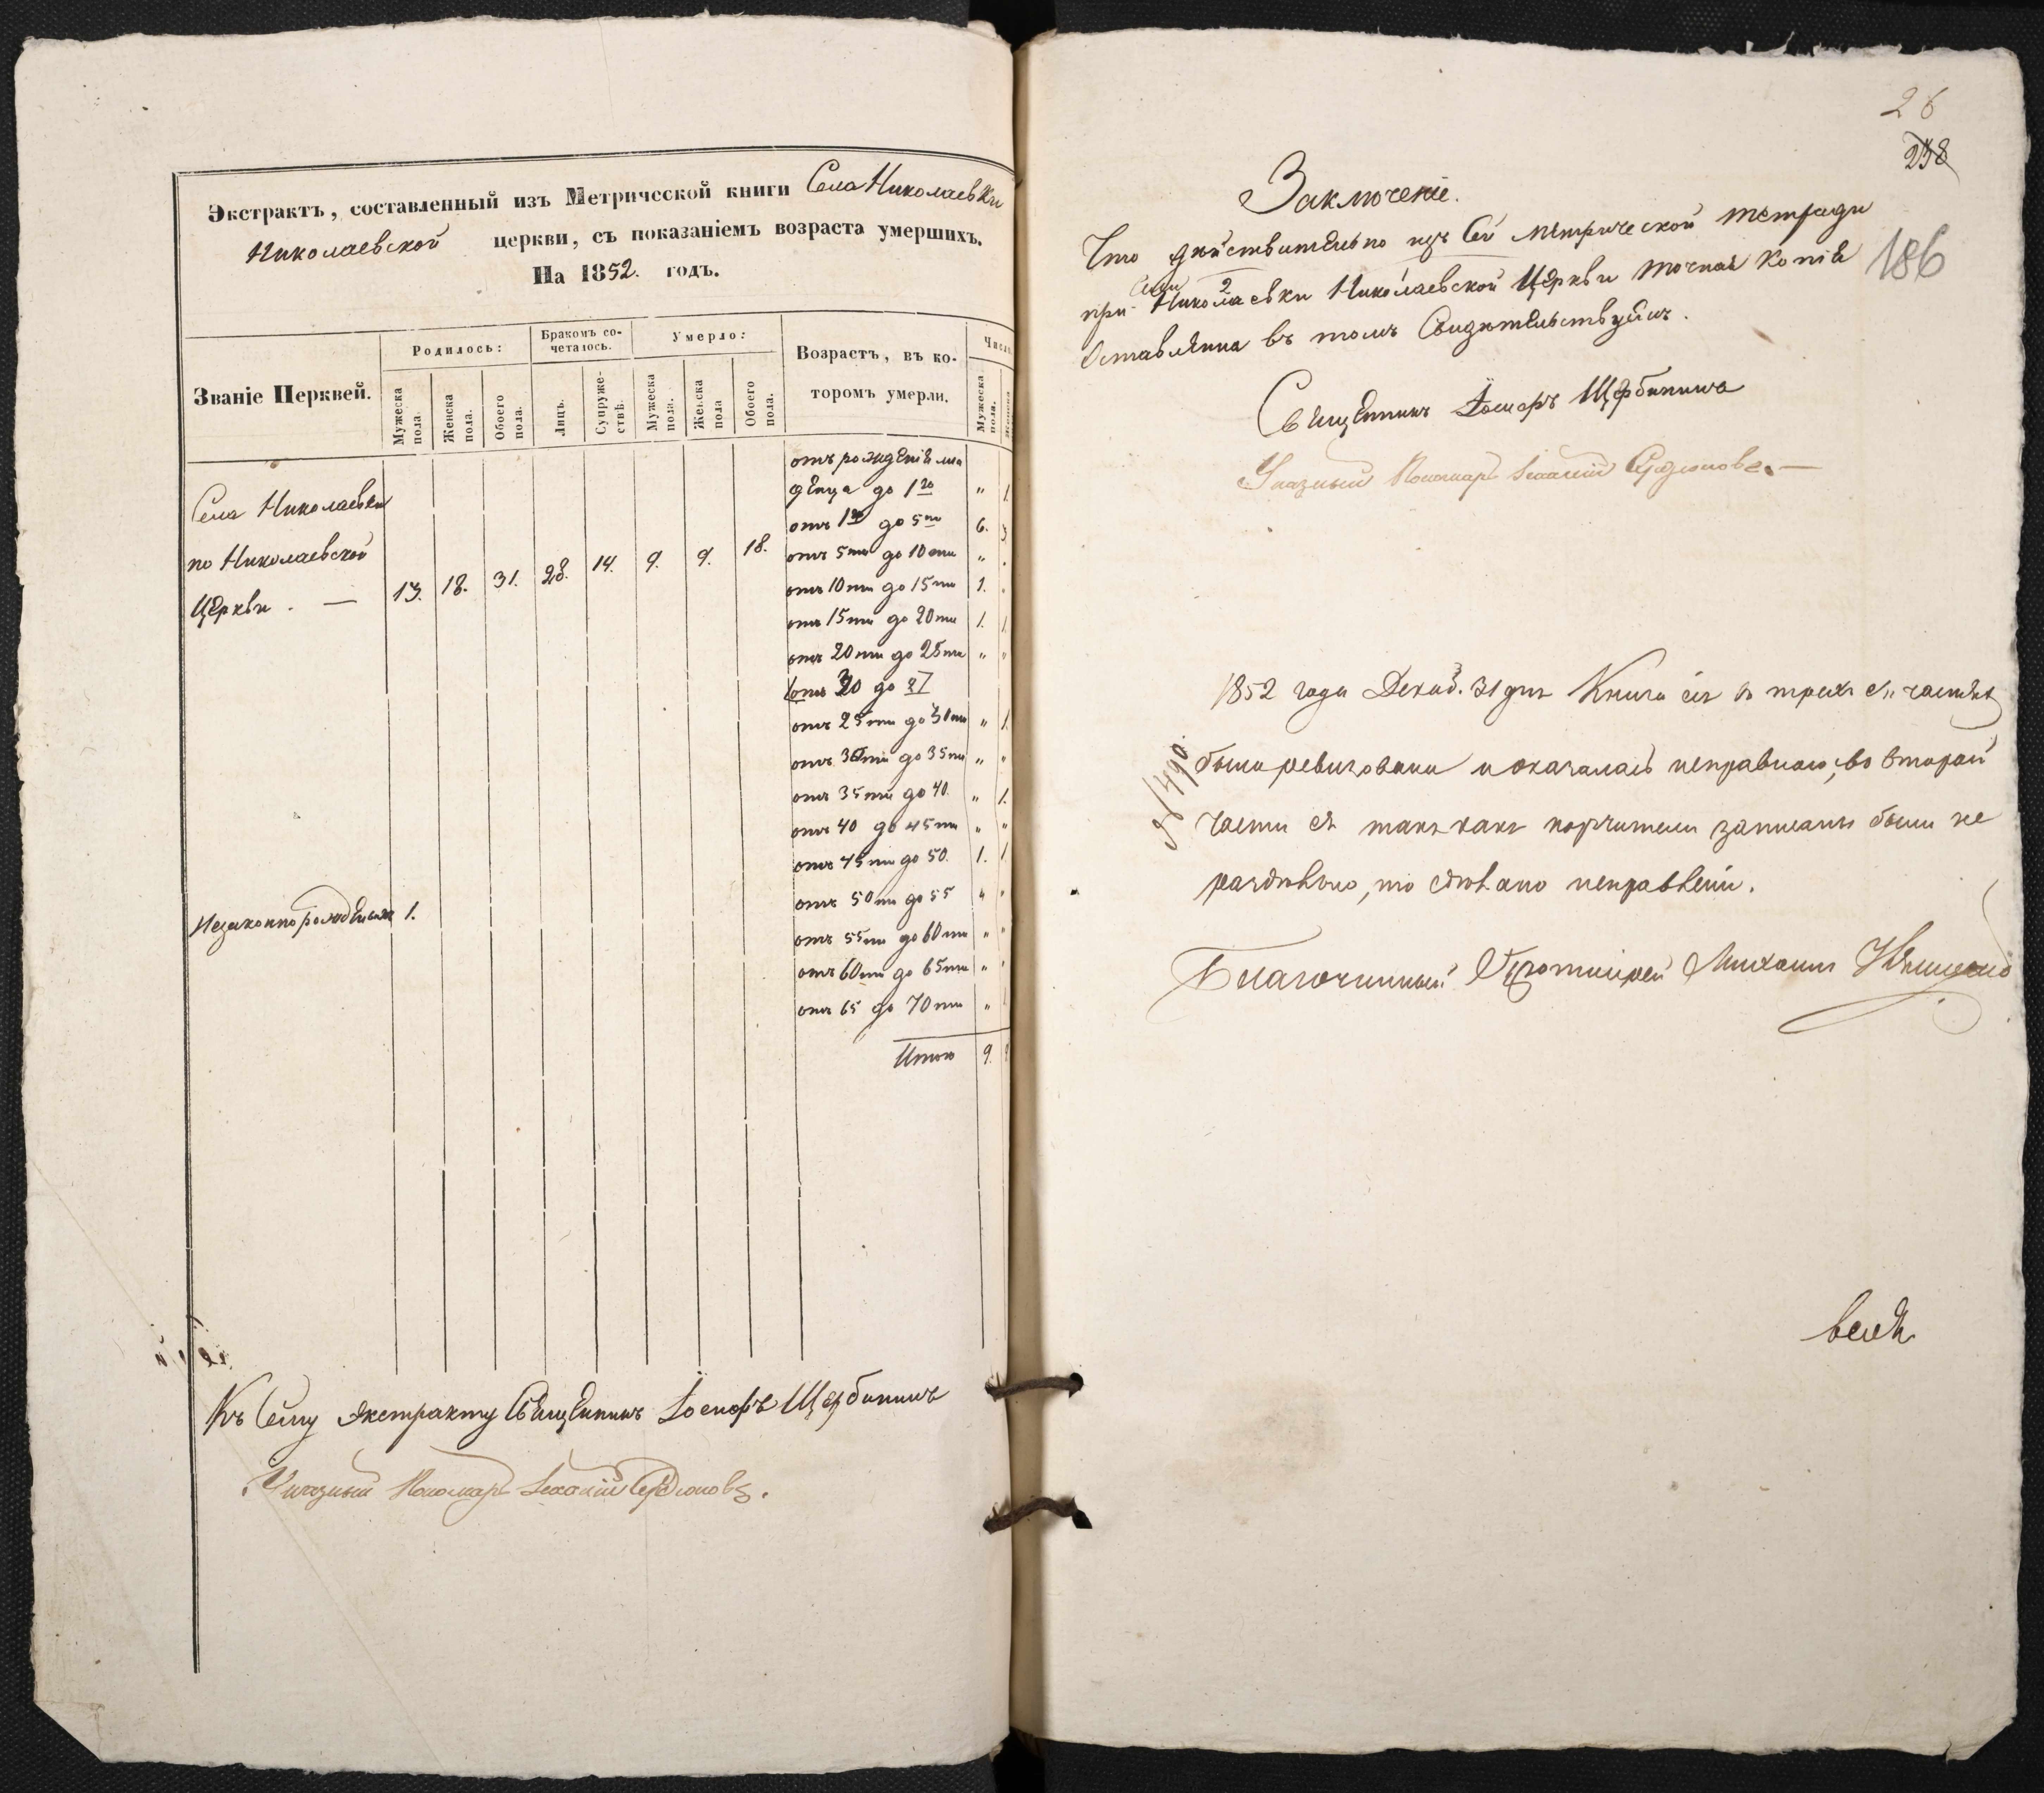 Экстрактъ, составленный изъ Метрической книги Села Николаевки
Николаевской церкви, съ показаніемъ возраста умершихъ.
На 1852. годъ.
Званіе Церквей.
Родилось:
Мужеска пола.
Женска пола.
Обоего пола.
Бракомъ сочеталось.
Лицъ.
Супружествъ.
Умерло:
Мужеска пола.
Женска пола
Обоего пола.
Возрастъ, въ котормъ умерли.
Число
Мужеска пола.
Женска
отъ рожденія мла
денца до 1го " 1.
Села Николаевки
отъ 1го до 5ти 6. 3
по Николаевской
отъ 5ти до 10ти " .
Церкви . — 13. 18. 31. 28. 14. 9. 9. 18.
отъ 10ти до 15ти 1. .
отъ 15ти до 20ти 1. 1.
отъ 20ти до 25ти " "
отъ 25ти до 30ти " 1.
отъ 30ти до 35ти " "
отъ 35ти до 40. " 1.
отъ 40 до 45ти " "
отъ 45ти до 50. 1. 1
отъ 50ти до 55 " "
Незаконнорожденныхъ 1.
отъ 55ти до 60ти " "
отъ 60ти до 65ти " "
отъ 65 до 70ти "
Итого 9.
Къ сему экстракту Священникъ Іосифъ Щербининъ
Указный Пономарь
26
238
186
Заключеніе.
Что действительно изъ сей метрической тетради
Села
при Николаевки Николаевской Церкви точная копія
оставленна въ томъ Свидетельствуемъ.
Священникъ Іосифъ Щербининъ
Указный Пономарь
1852 года Декаб. 31 дня Книга сія въ трехъ ея частяхъ
№ 490.
была ревизована и оказалась исправною, во второй
части ея такъ какъ поручители записаны были не
раздельно, то сделано исправленіе.
Благочинный Протоіерей Михаилъ